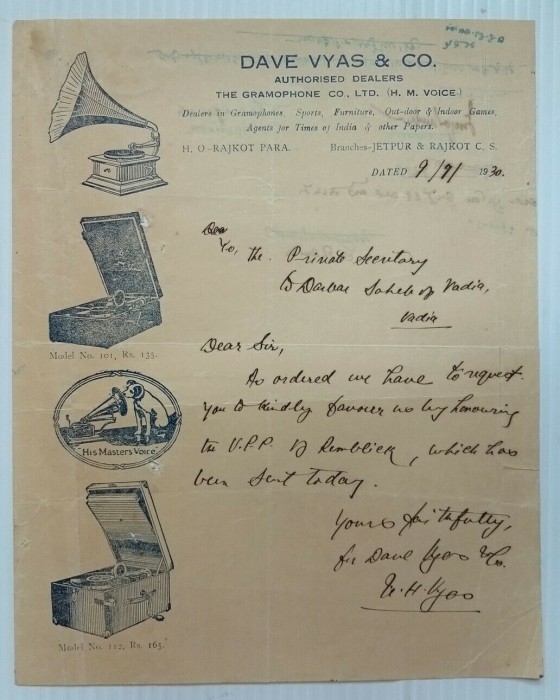 DAVE VYAS & CO.
AUTHORISED DEALERS
THE GRAMOPHONE CO., LTD. (H. M. VOICE.)
Dealers in Gramophones, Sports, Furniture, Out-door & Indoor Games,
Agents for Times of India & other Papers.
H. O-RAJKOT PARA. Branches-JETPUR & RAJKOT C. S.
DATED 9/9/1930.
To, the Private Secretary
to Darbar Saheb of Vadia,
Vadia
Dear Sir,
As ordered we have to request
you to kindly favour us by honouring
the V.P.P. of, which has
been sent today.
Yours faithfully,
for Dave Vyas & Co.
H. Vyas
Model No. 101, Rs. 135.
"His Masters Voice"
Model No. 112, Rs. 165.